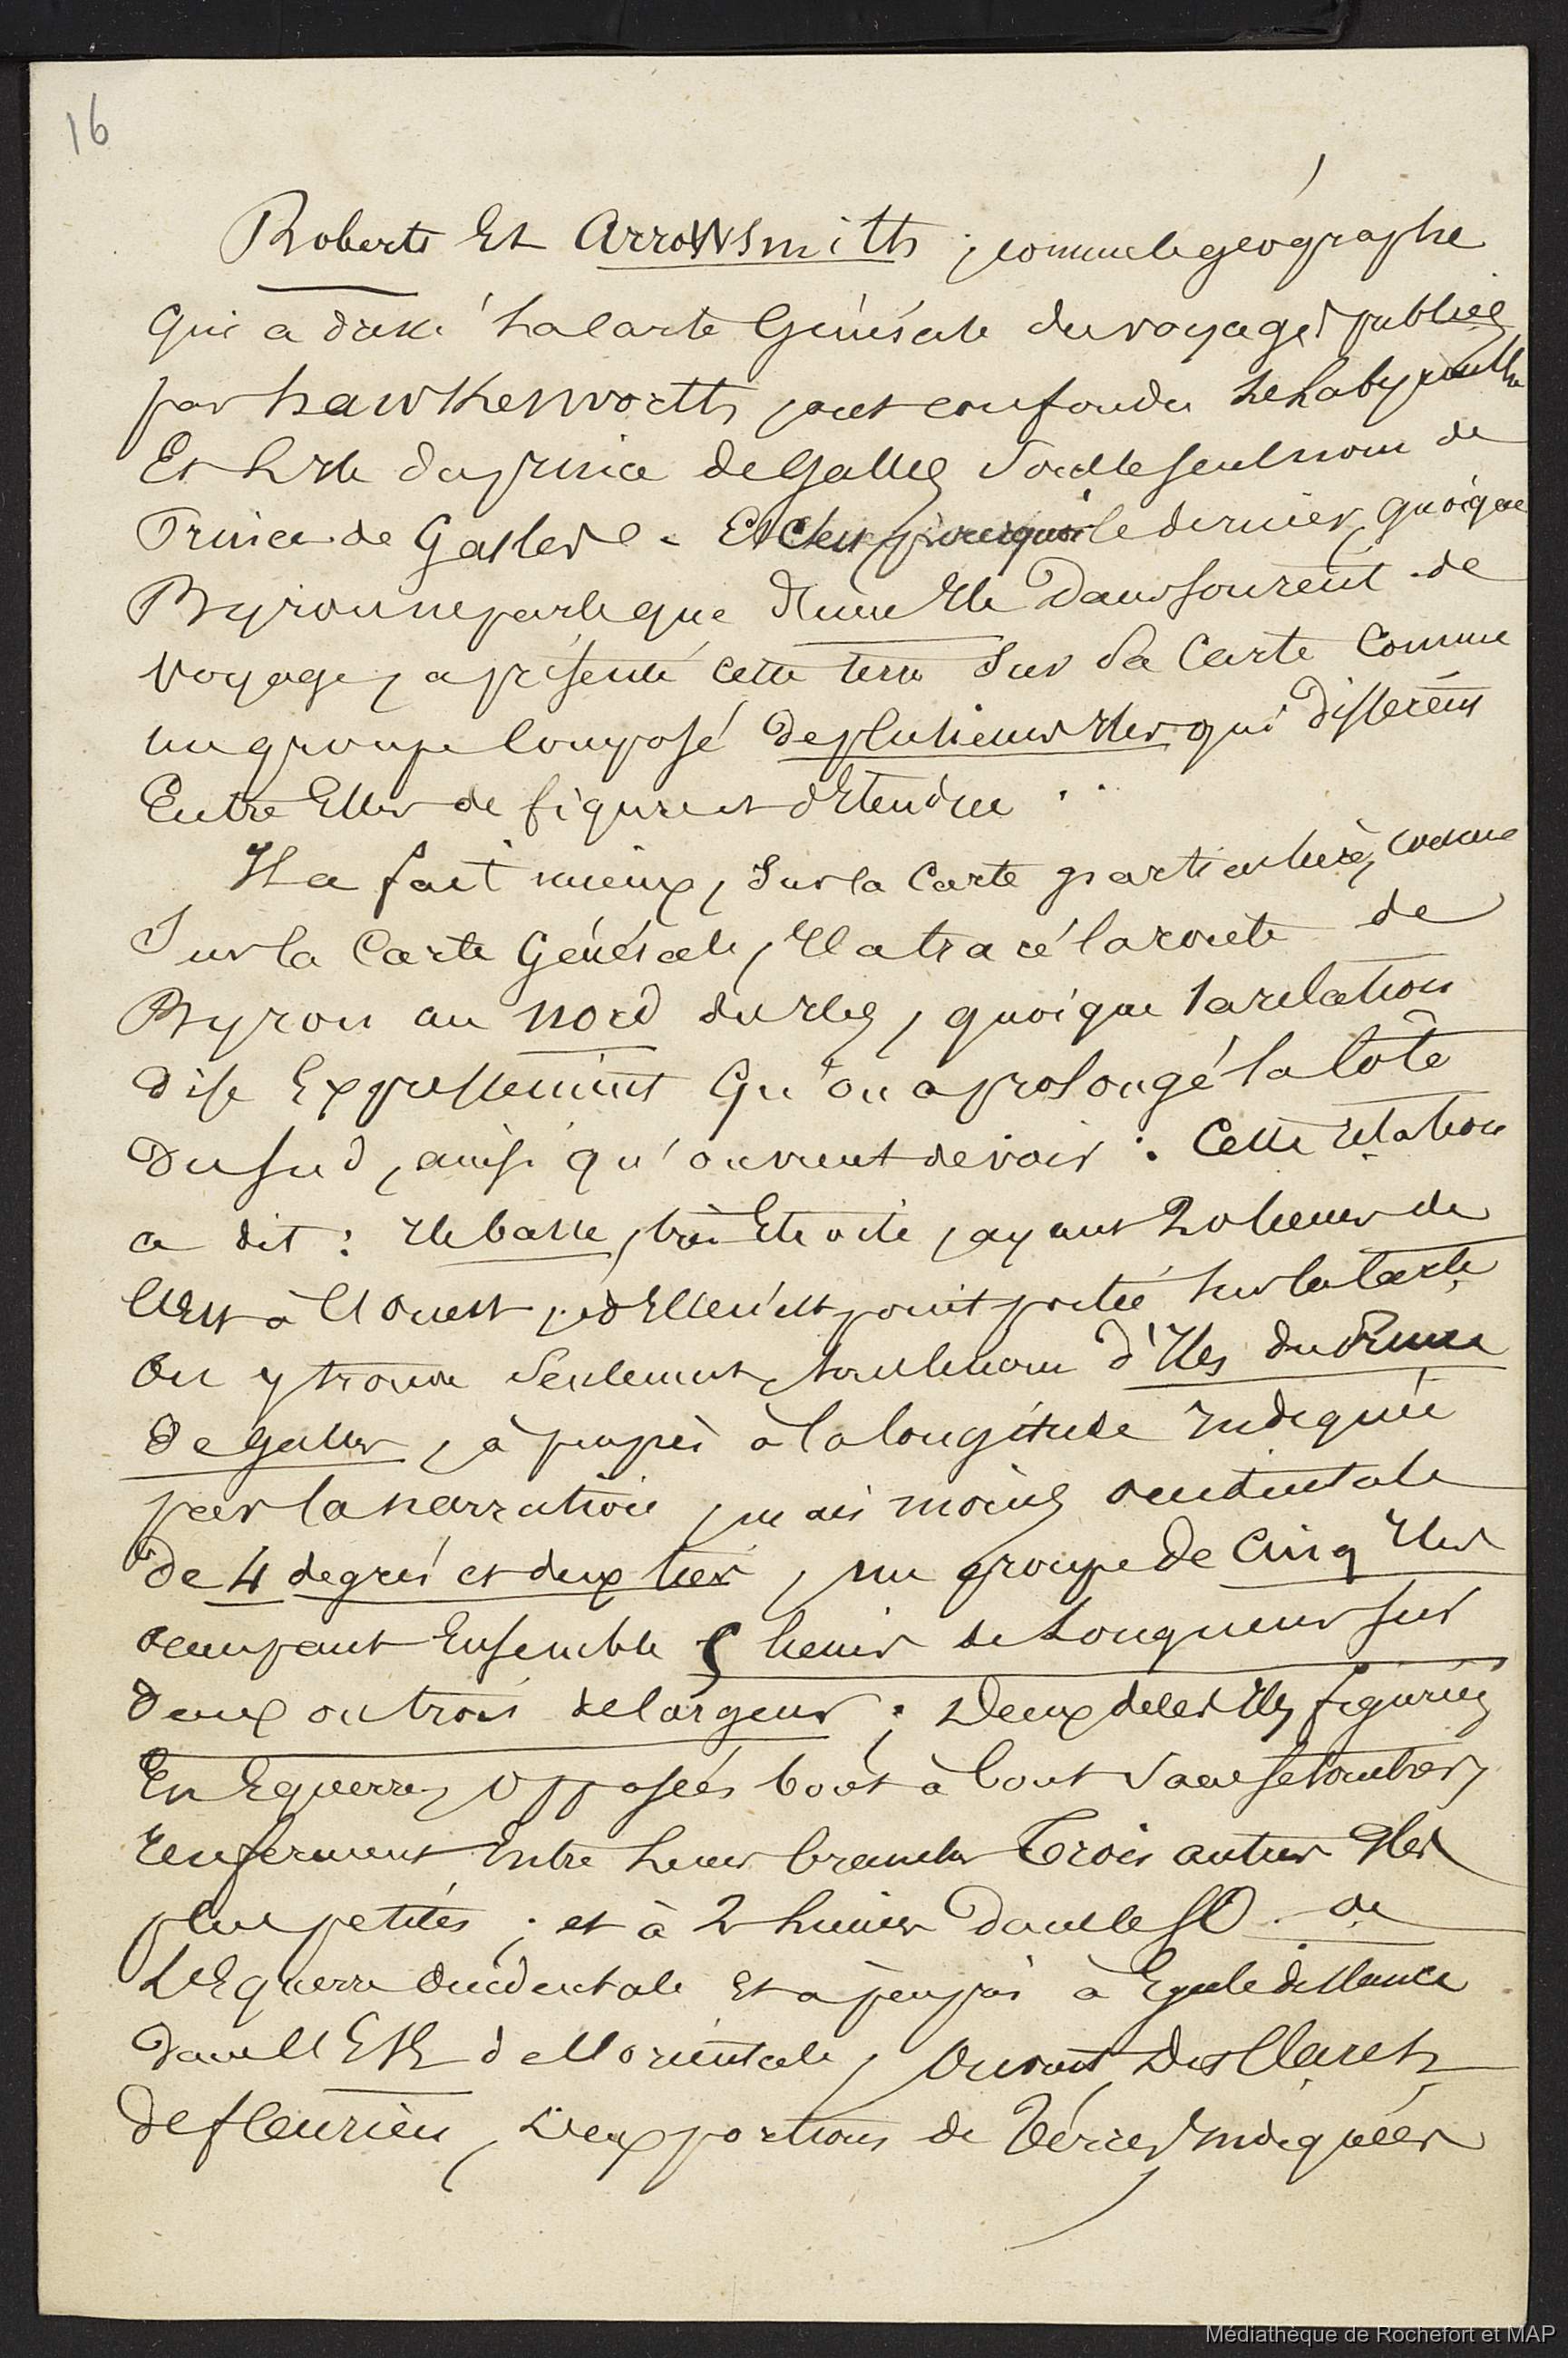 16
Roberts Et Arrowsmith, comme le géographe
qui a dressé la Carte Générale du voyages publiés
par hawkesworth, ont confondu Le Labyrinthe
Et L'Ile du prince de Galles sous le seul nom de
Prince de Galles. Et le dernier, quoique
Byron ne parle que d'une Ile dans son récit de
voyage, a présenté cette terre sur Sa Carte Comme
un groupe Composé de plusieurs Iles qui diffèrent
Entre Elles de figure et d'Etendue..
Il a fait mieux, Sur la Carte particulière, comme
Sur la Carte Générale, Il a tracé la route de
Byron au nord des Iles, quoique la relation
dise Expressément Qu'on a prolongé la Côte
du Sud, ainsi qu'on vient de voir. Cette relation
a dit : Ile basse, très Etroite, ayant 20 lieues de
l'Est à l'Ouest, Elle n'est point portée sur la Carte,
On y trouve Seulement, sous le nom d'Iles du Prince
de Galles, à peu près à la longitude Indiquée
par la narration, mais moins occidentale
de 4 degrés et deux tiers, un groupe de Cinq Iles
occupant Ensemble 5 lieues de Longueur sur
deux ou trois de largeur ; Deux de ces Iles figurées
En Equerres, opposées bout à bout Sans se toucher,
renferment Entre Leurs branches Trois autres Iles
plus petites ; et à 2 lieues dans le SO de
L'Equerre Occidentale Et à peu près à Egale distance
dans l'ESE de l'orientale, suivant Des Claret
de fleurieu, Deux portions de Terres Indiquées
Médiathèque de Rochefort et MAP